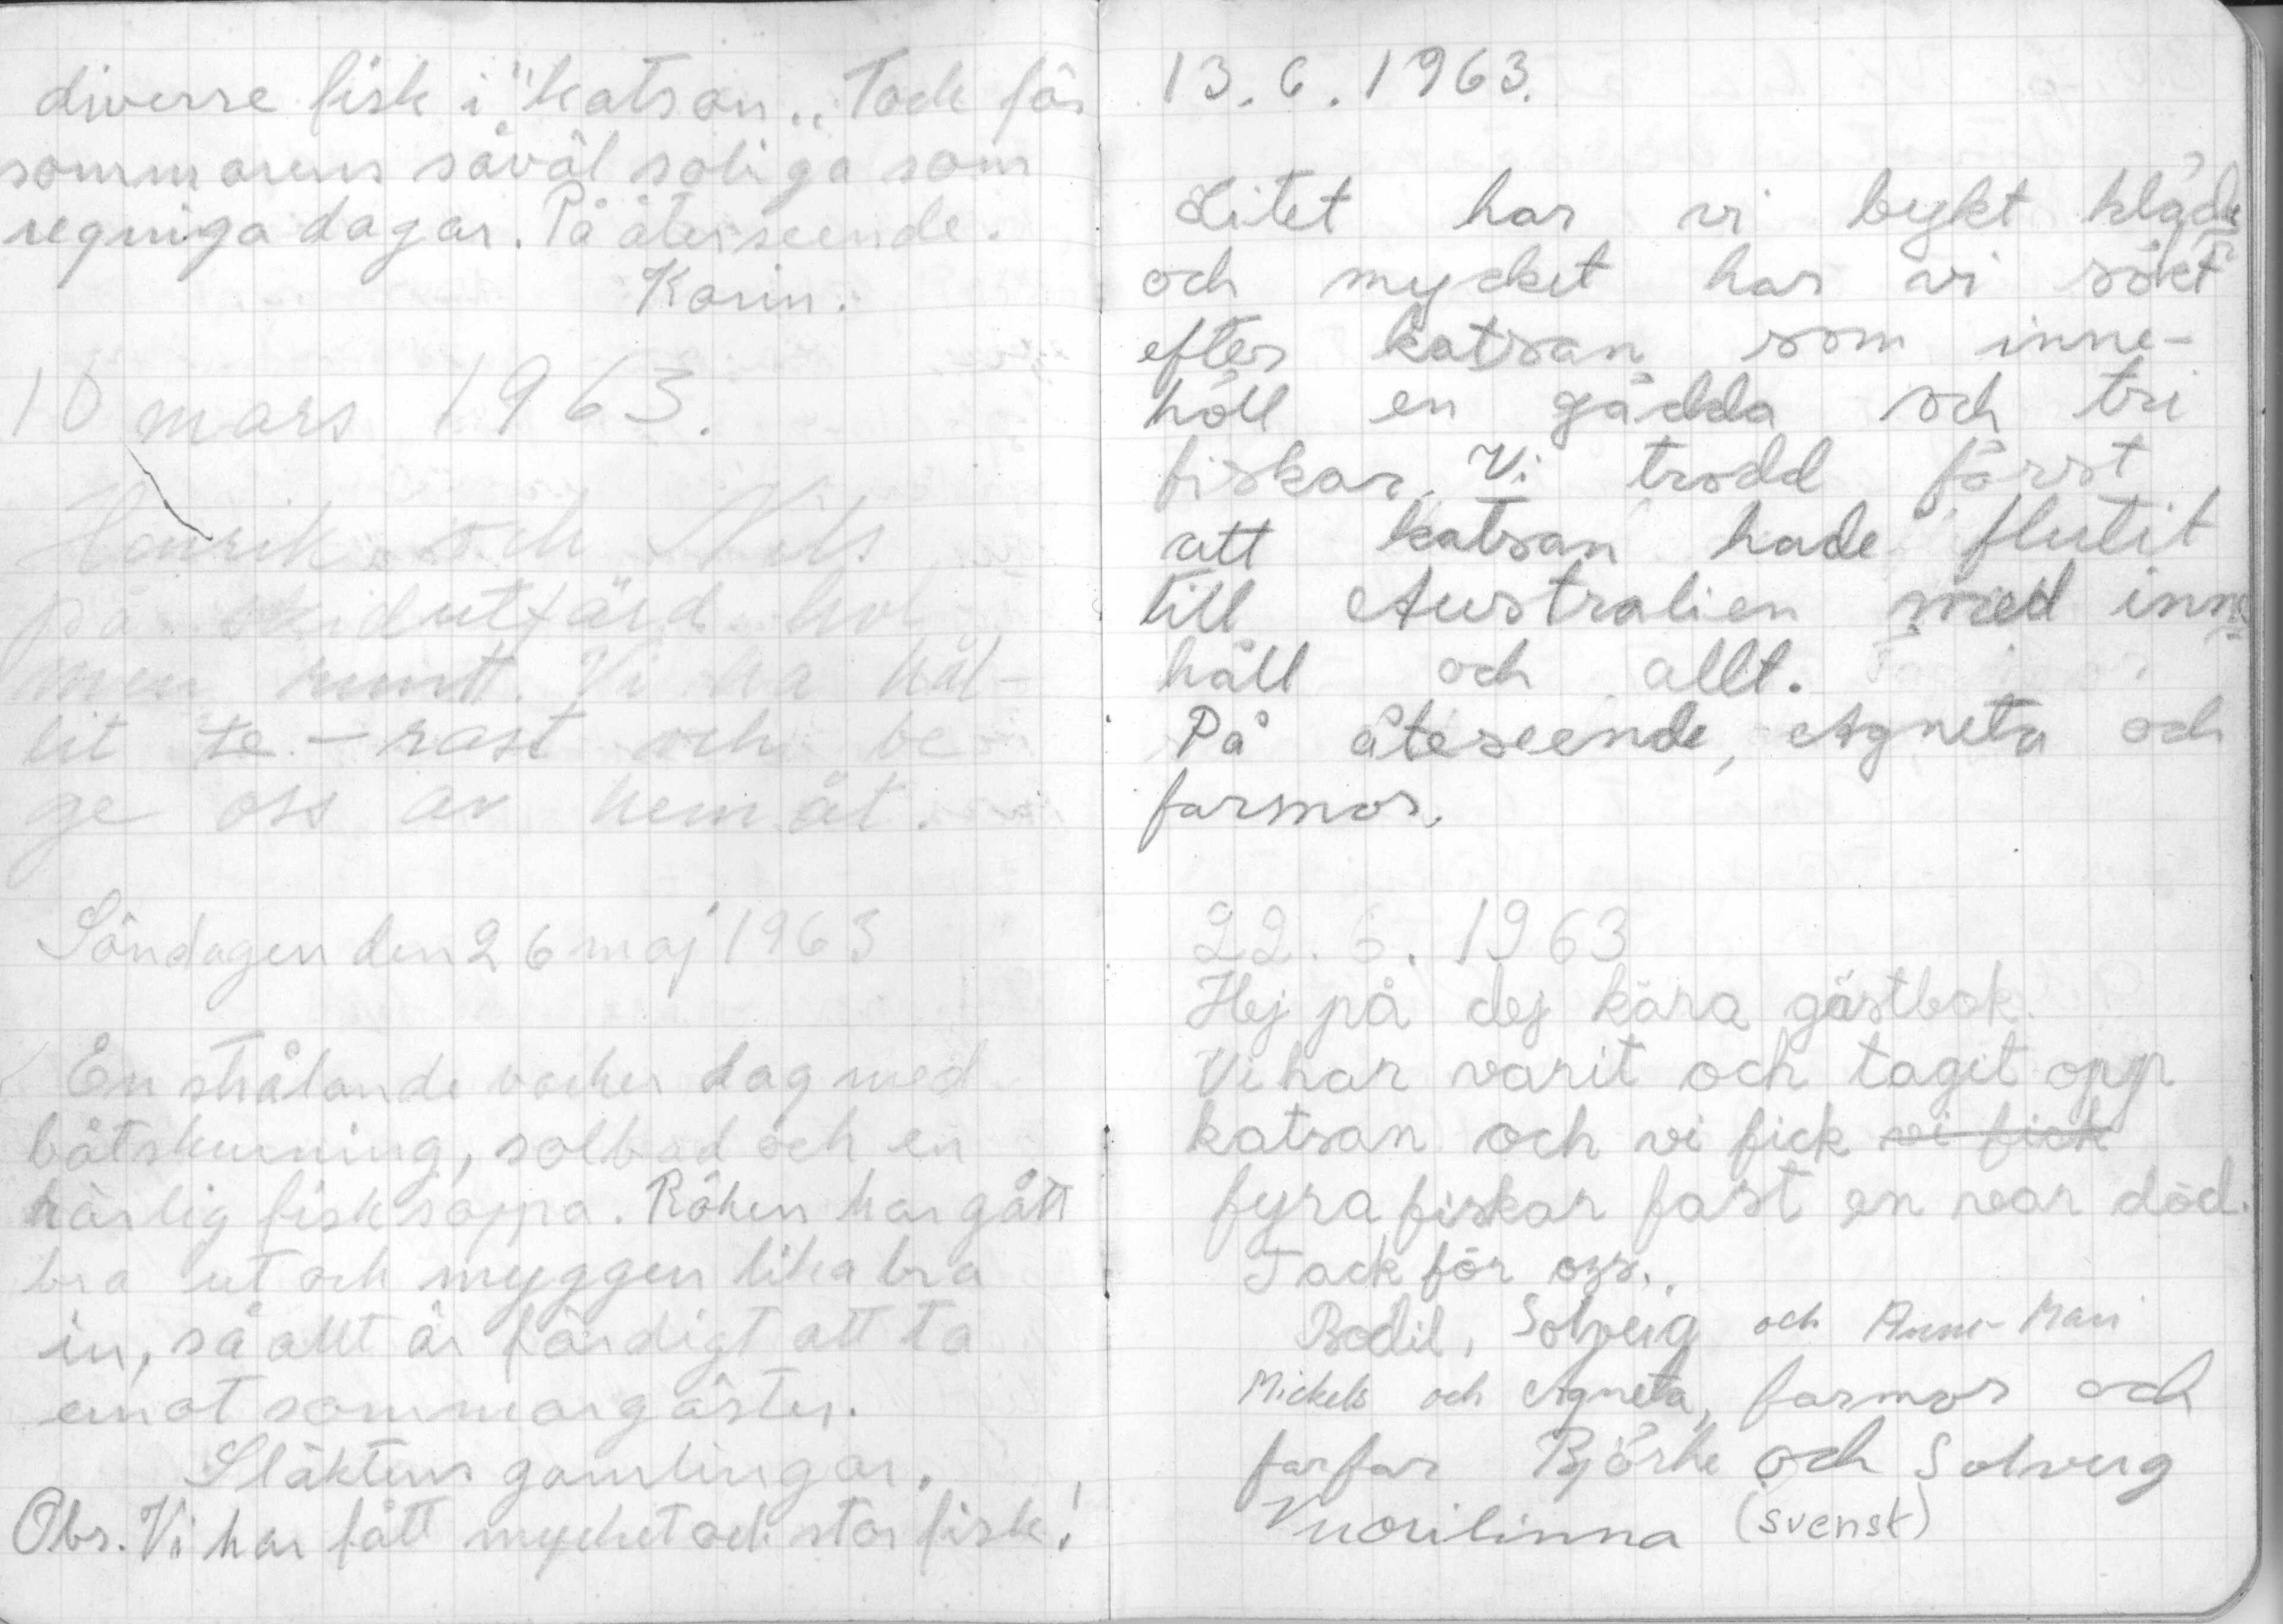 diverse fisk i "katsan„. Tack för
sommarens såväl soliga som
regniga dagar. På återseende.
Karin.
10 mars 1963.
Henrik och Nils
på skidutfärd hol-
men runtt. Vi ha hål-
lit te-rast och be
ge oss av hemåt.
Söndagen den 26 maj 1963
En strålande vacker dag med
båtskurning, solbad och en
härlig fisksoppa. Röken har gått
bra ut och myggen lika bra
in, så allt är färdigt att ta
emot sommargäster.
Släktens gamlingar.
Obs. Vi har fått mycket och stor fisk!
13.6.1963.
Litet har vi bykt kläde
och mycket har vi sökt
efter katsan som inne-
höll en gädda och tri
fiskar. Vi trodd först
att katsan hade flutit
till Australien med inne
håll och allt.
På åteseende, Agneta och
farmor.
22.6.1963
Hej på dej kära gästbok.
Vi har varit och tagit opp
katsan och vi fick vi fick
fyra fiskar fast en var död.
Tack för oss.
Bodil, Solveig och Anne-Mari
Mickels och Agneta, farmor och
farfar Björke och Solveig
Vuorilinna (svensk)